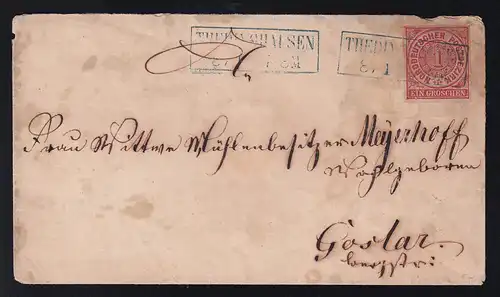 THEDINGHAUSEN
THEDIN
8/1
NORDDEUTSCHER POSTBEZIRK
1
EIN GROSCHEN
Frau Wittwe Mühlenbesitzer Meyerhoff
Wohlgeboren
Goslar.
Bergstr: